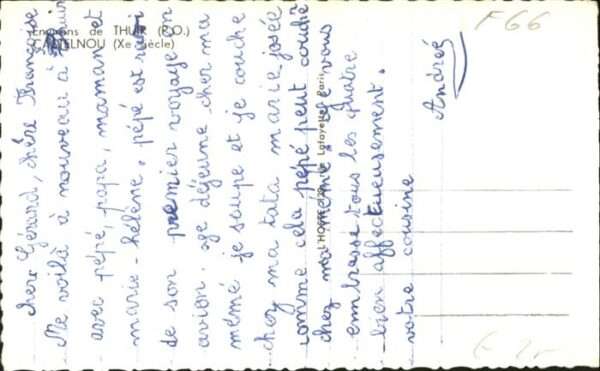 Environs de THUIR (P.O.)
CASTELNOU (Xe siècle)
chers Gérard, chère Françoise
Me voilà à nouveau à Thuir
avec pépé, papa, maman et
marie-hélène. pépé est ravi
de son premier voyage en
avion. je déjeune cher ma
mémé je soupe et je couche
chez ma tata marie josée
comme cela pépé peut couché
chez ma mémé. je vous
embrasse tous les quatre
bien affectueusement.
votre cousine
Andreé
Lafayette, Paris
F66